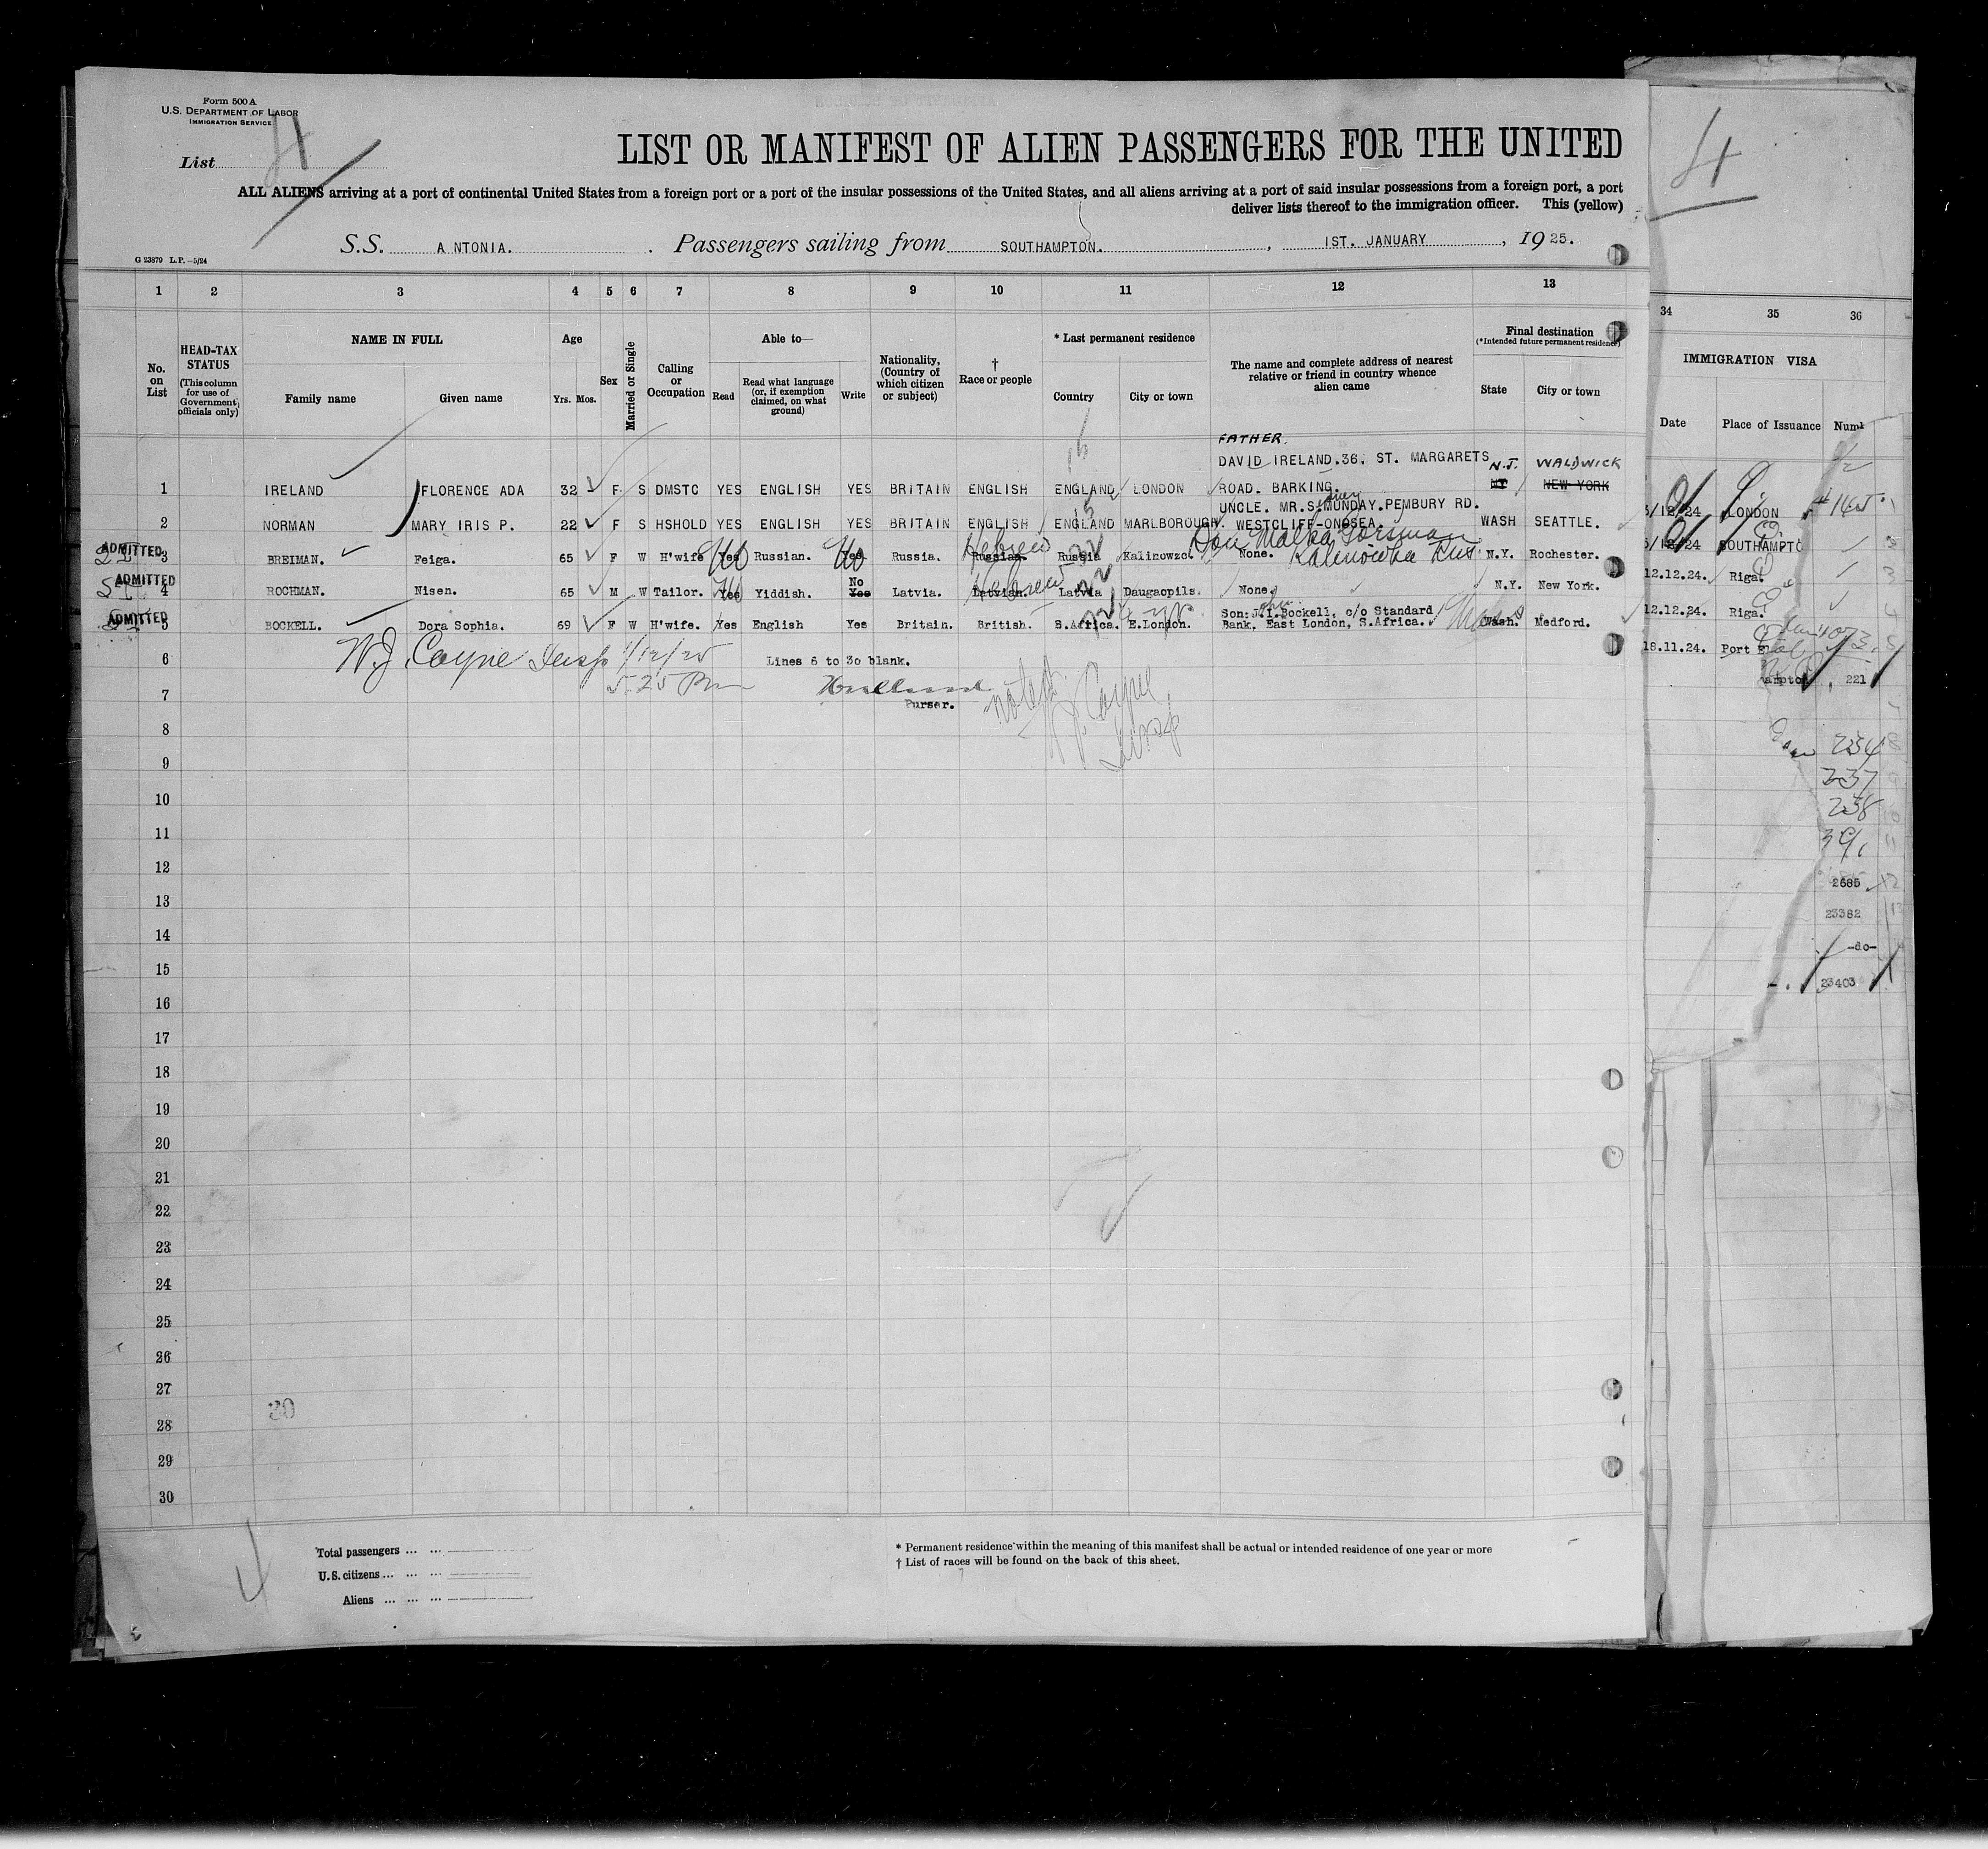 Form 500 A
U.S. DEPARTMENT OF LABOR
IMMIGRATION SERVICE
List 4
LIST OR MANIFEST OF ALIEN PASSENGERS FOR THE UNITED
4
ALL ALIENS arriving at a port of continental United States from a foreign port or a port of the insular possessions of the United States, and all aliens arriving at a port of said insular possessions from a foreign port, a port
deliver lists thereof to the immigration officer. This (yellow)
S.S. ANTONIA. Passengers sailing from SOUTHAMPTON. , 1ST. JANUARY , 1925.
G 23879 L.P.—5/24
1 2 3 4 5 6 7 8 9 10 11 12 13 34 35 36
No. on List
HEAD-TAX STATUS (This column for use of Government officials only)
NAME IN FULL
Family name Given name
Age
Yrs. Mos.
Sex
Married or Single
Calling or Occupation
Able to—
Read
Read what language (or, if exemption claimed, on what ground)
Write
Nationality, (Country of which citizen or subject)
† Race or people
* Last permanent residence
Country City or town
The name and complete address of nearest relative or friend in country whence alien came
Final destination
(*Intended future permanent residence)
State City or town
IMMIGRATION VISA
Date Place of Issuance Numb
FATHER.
DAVID IRELAND.36. ST. MARGARETS N.J. WALDWICK
1 IRELAND FLORENCE ADA 32 F S DMSTC YES ENGLISH YES BRITAIN ENGLISH ENGLAND LONDON ROAD. BARKING. NY NEW YORK /12/24 LONDON
UNCLE. MR.S.MUNDAY.PEMBURY RD.
2 NORMAN MARY IRIS P. 22 F S HSHOLD YES ENGLISH YES BRITAIN ENGLISH ENGLAND MARLBOROUGH. WESTCLIFF-ONOSEA. WASH SEATTLE. /12/24 SOUTHAMPTO
Malka Gorsman
ADMITTED 3 BREIMAN. Feiga. 65 F W H'wife Yes Russian. Yes Russia. Russian. Hebrew Russia Kalinowzc. None. Kalinowka N.Y. Rochester. 12.12.24. Riga.
ADMITTED 4 ROCHMAN. Nisen. 65 M W Tailor. Yes Yiddish. No Yes Latvia. Latvian. Hebrew Latvia Daugaopils. None. N.Y. New York. 12.12.24. Riga.
Son: J.I.Bockell, c/o Standard
ADMITTED 5 BOCKELL. Dora Sophia. 69 F W H'wife. Yes English Yes Britain. British. S.Africa. E.London. Bank, East London, S.Africa. Mass Wash. Medford. 18.11.24. Port E
6 W.J. Coyne Insp 1/12/25 Lines 6 to 30 blank.
5.25 Pm
ampton 221
7 Purser.
noted
W.J. Coyne
Insp
8
234
9
237
10
238
11
391
12
2685
13
23382
14
-do-
15
23403
16
17
18
19
20
21
22
23
24
25
26
27
30
28
29
30
Total passengers ... ...
U.S. citizens ... ... ...
Aliens ... ... ...
* Permanent residence within the meaning of this manifest shall be actual or intended residence of one year or more
† List of races will be found on the back of this sheet.
4